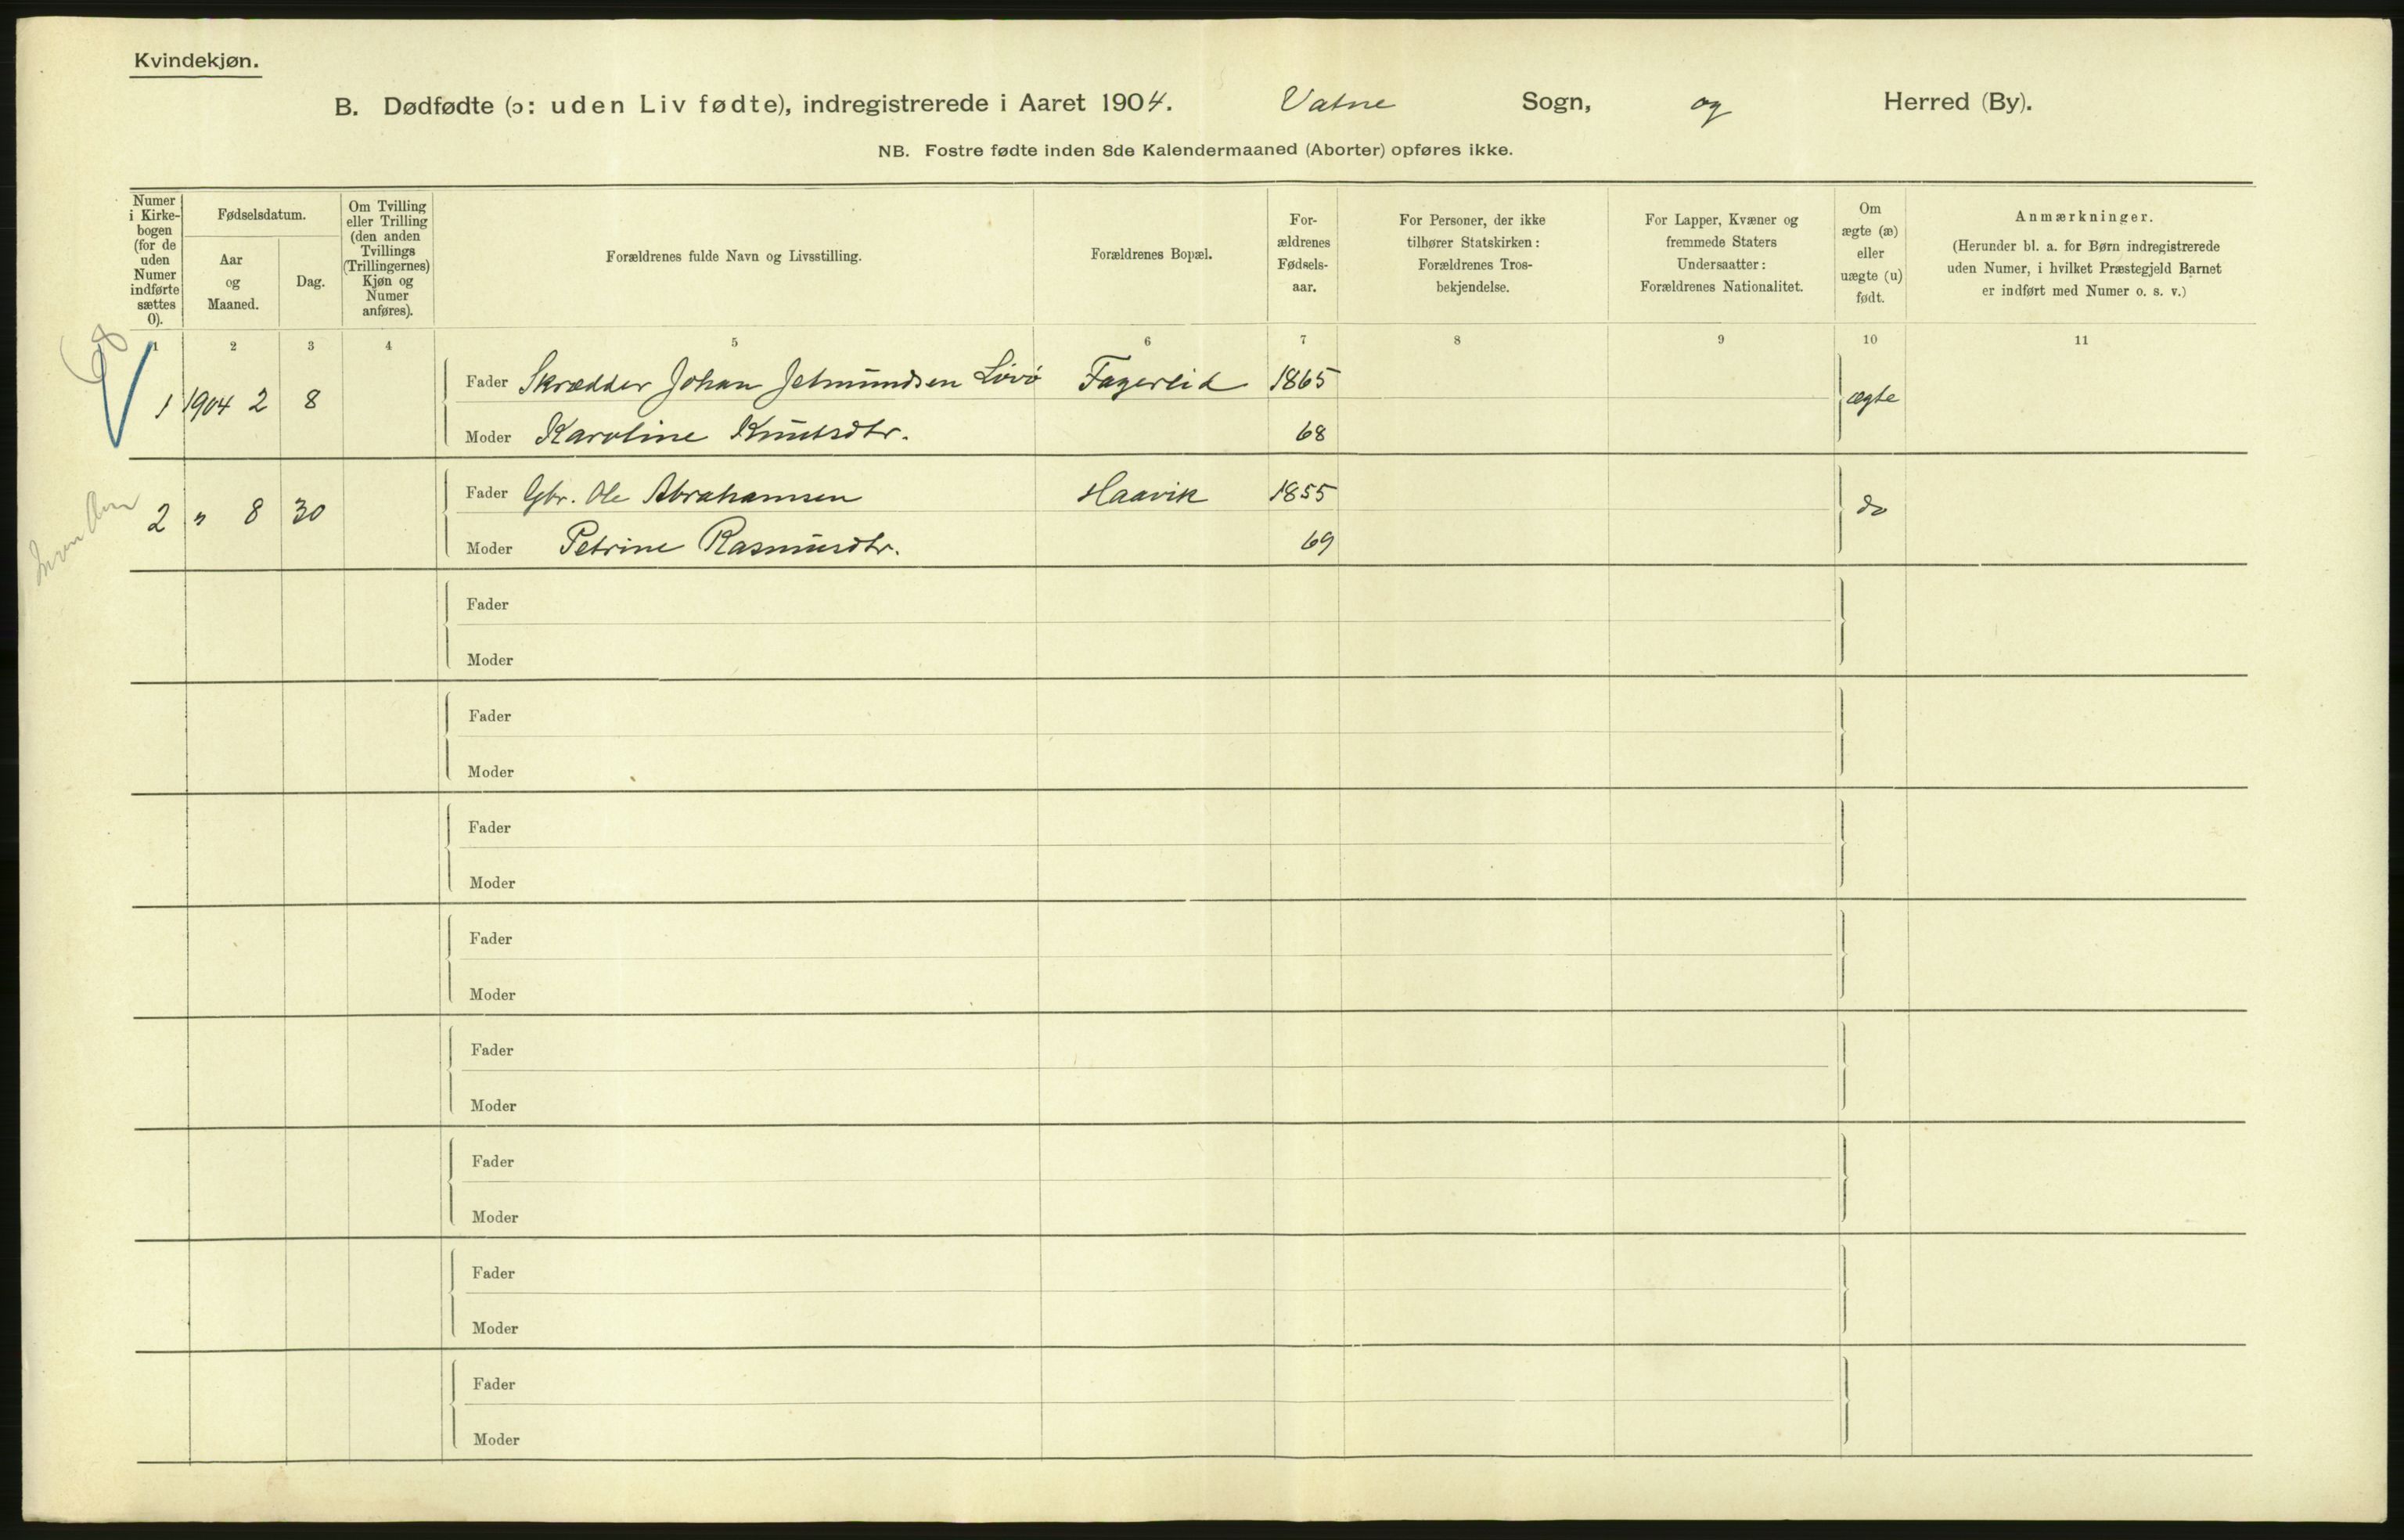 Kvindekjøn.
B. Dødfødte (ɔ: uden Liv fødte), indregistrerede i Aaret 1904. Vatne Sogn, og Herred (By).
NB. Fostre fødte inden 8de Kalendermaaned (Aborter) opføres ikke.
Numer i Kirke-bogen (for de uden Numer indførte sættes 0).
Fødselsdatum.
Aar og Maaned.
Dag.
Om Tvilling eller Trilling (den anden Tvillings (Trillingernes) Kjøn og Numer anføres).
Forældrenes fulde Navn og Livsstilling.
Forældrenes Bopæl.
For-ældrenes Fødsels-aar.
For Personer, der ikke tilhører Statskirken: Forældrenes Tros-bekjendelse.
For Lapper, Kvæner og fremmede Staters Undersaatter: Forældrenes Nationalitet.
Om ægte (æ) eller uægte (u) født.
Anmærkninger.
(Herunder bl. a. for Børn indregistrerede uden Numer, i hvilket Præstegjeld Barnet er indført med Numer o. s. v.)
1 2 3 4 5 6 7 8 9 10 11
68
1 1904 2 8 Fader Skrædder Johan Jetmundsen Lövö Fagereid 1865 ægte
Moder Karoline Knutsdtr. 68
2 " 8 30 Fader Gbr. Ole Abrahamsen Haavik 1855 do
Moder Petrine Rasmusdtr. 69
Fader
Moder
Fader
Moder
Fader
Moder
Fader
Moder
Fader
Moder
Fader
Moder
Fader
Moder
Fader
Moder